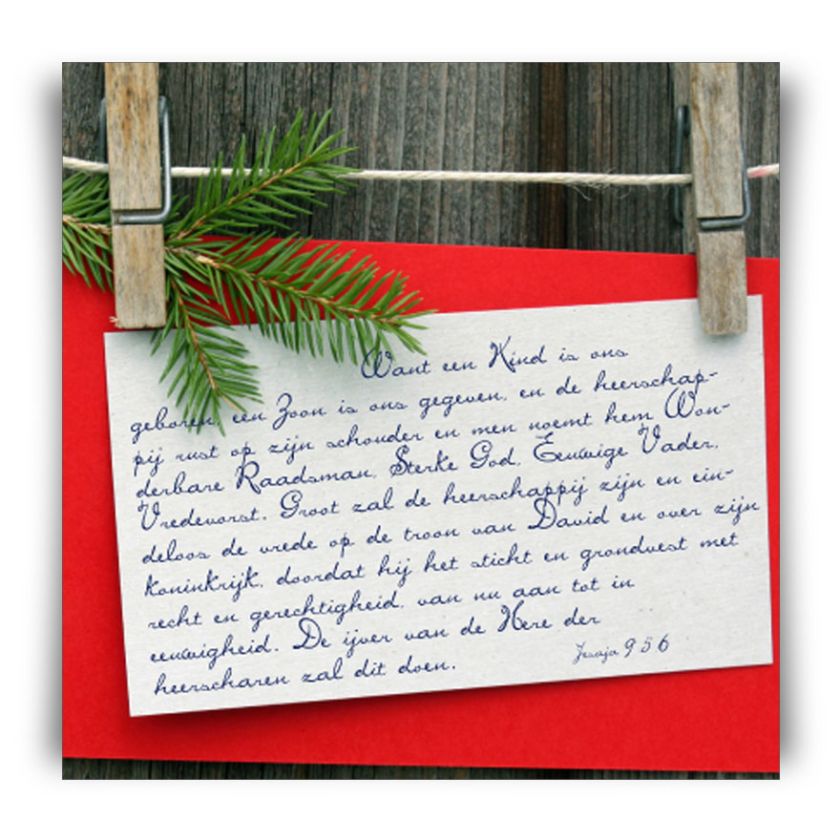 Want een Kind is ons
geboren, een Zoon is ons gegeven, en de heerschap-
pij rust op zijn schouder en men noemt hem Won-
derbare Raadsman, Sterke God, Eeuwige Vader,
Vredevorst. Groot zal de heerschappij zijn en ein-
deloos de vrede op de troon van David en over zijn
koninkrijk, doordat hij het sticht en grondvest met
recht en gerechtigheid, van nu aan tot in
eeuwigheid. De ijver van de Here der
heerscharen zal dit doen.
Jesaja 9 5 6